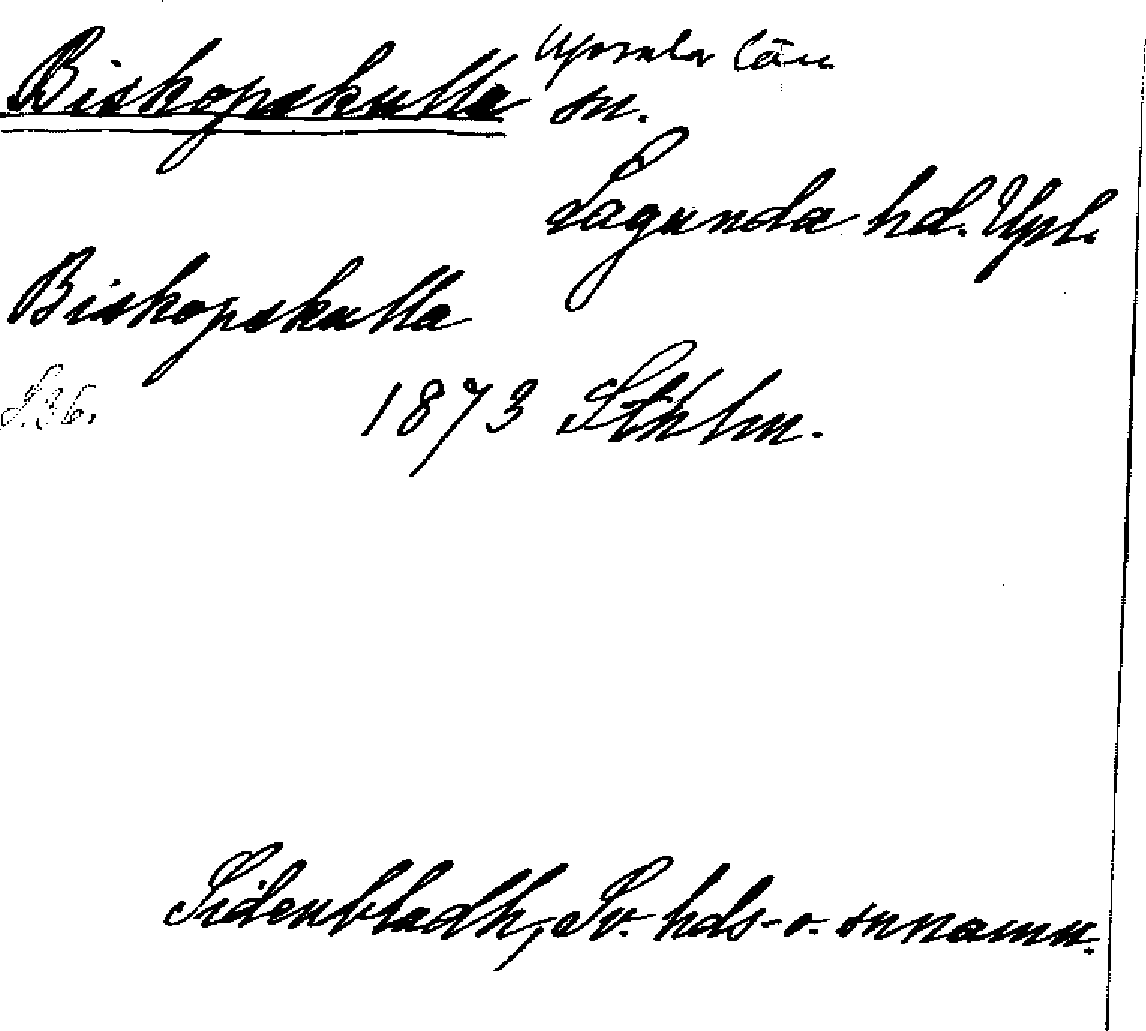 Upsala län
Biskopskulla sn.
Lagunda hd. Upl.
Biskopskulla
S. 36. 1873 Sthlm.
Sidenbladh, Sv. hds- o. snnamn.